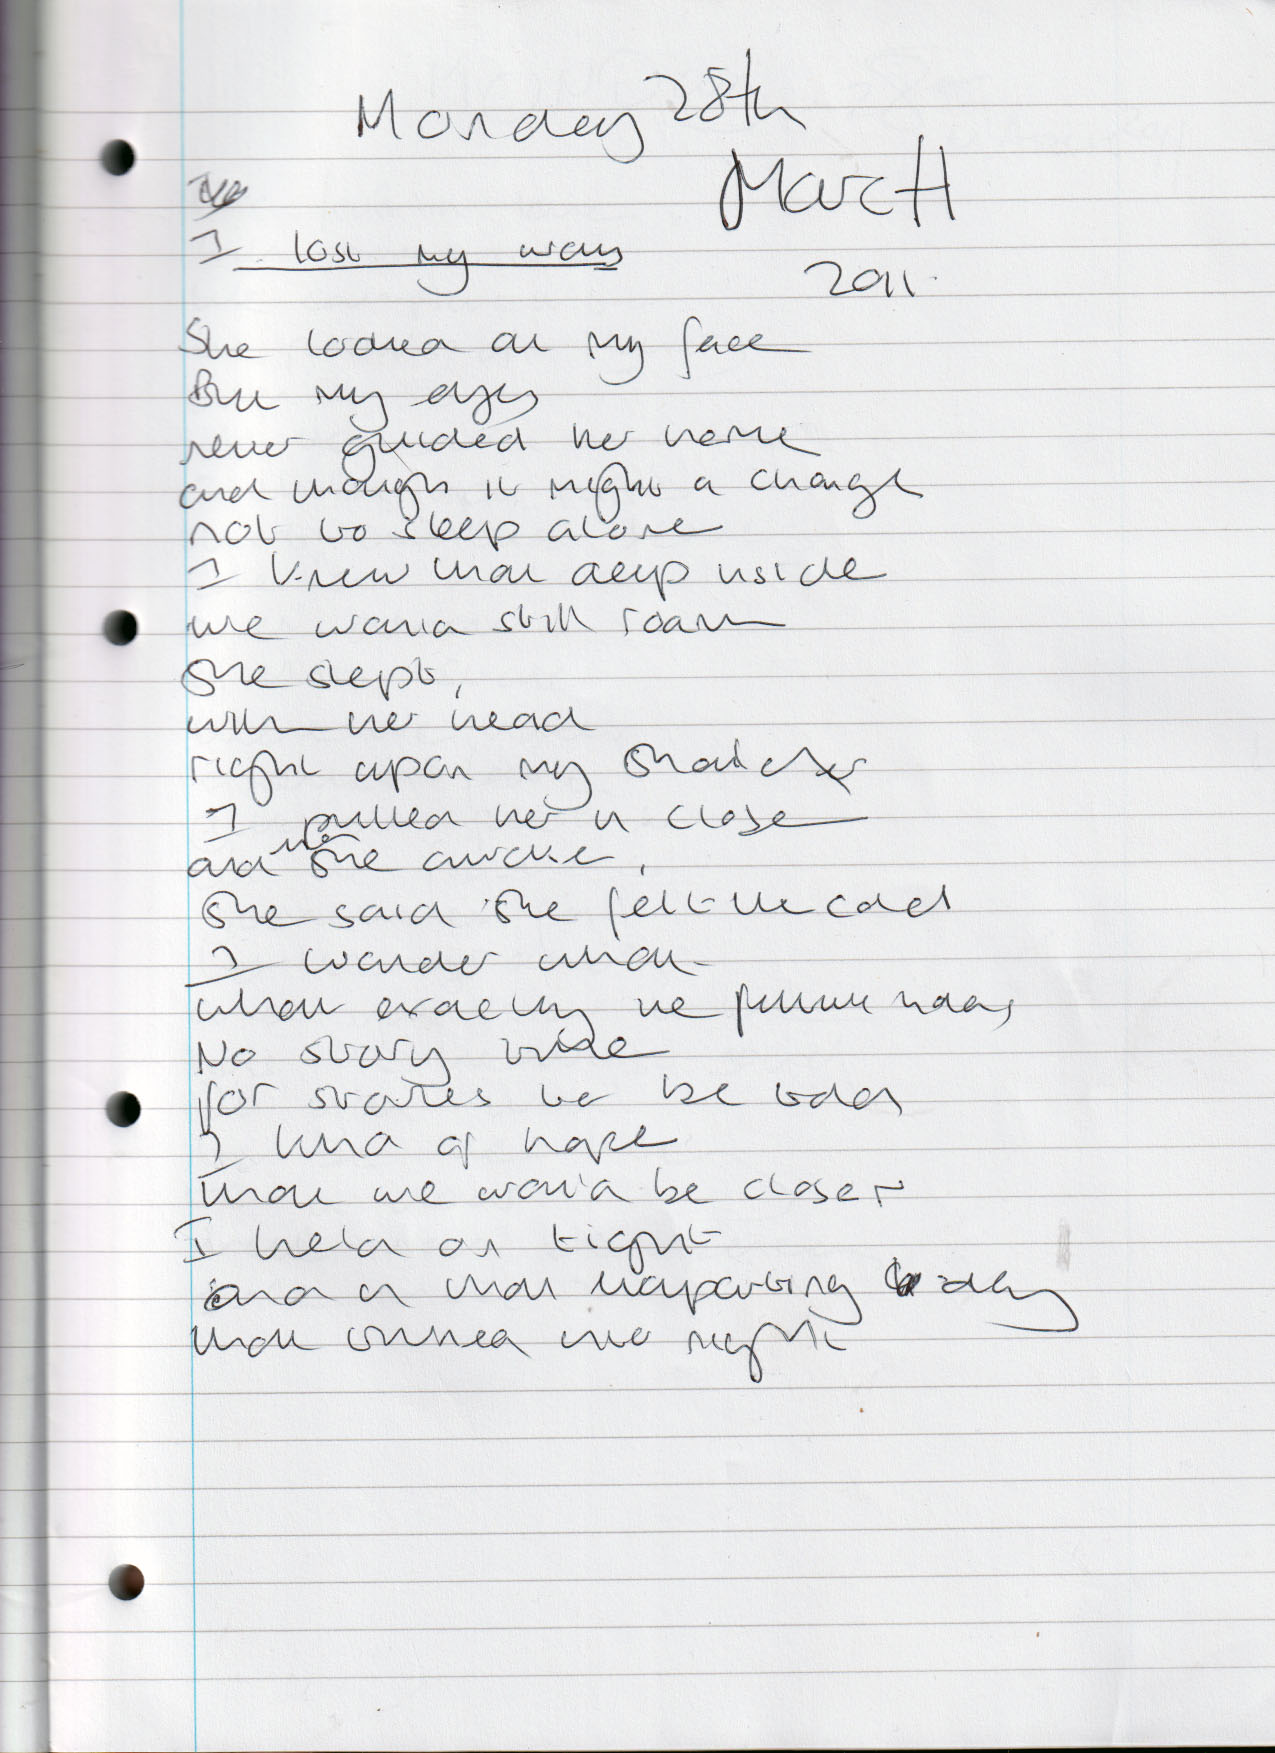 Monday 28th
March
2011.
I lost my way
She looked at my face
But my eyes
never guided her home
and though it might a change
not to sleep alone
I knew that deep inside
we would still roam
She slept,
with her head
right upon my shoulder
I pulled her in close
and she awoke,
She said she felt the cold
I wonder what
what exactly the future holds
No story line
for stories to be told
I kind of hope
that we would be closer
I held on tight
and in that day
that turned into night